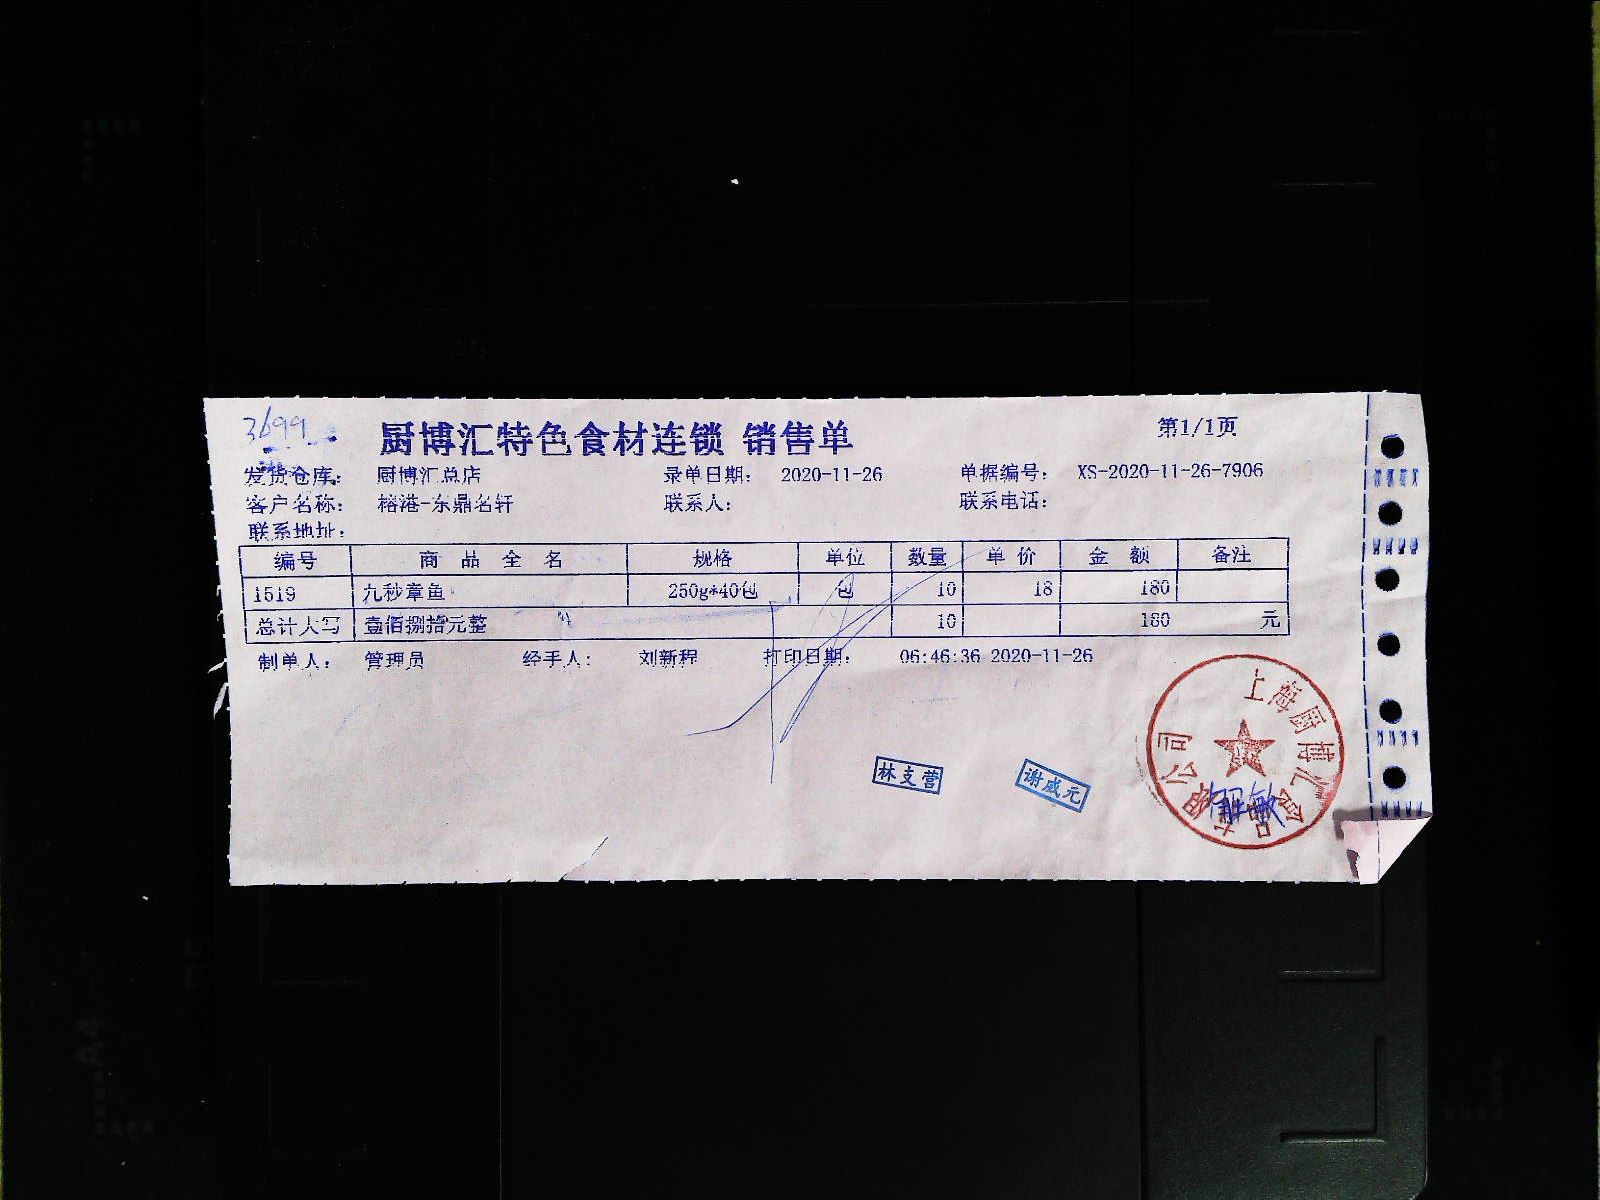 3699
厨博汇特色食材连锁 销售单
第1/1页
发货仓库: 厨博汇总店 录单日期: 2020-11-26 单据编号: XS-2020-11-26-7906
客户名称: 榕港-东鼎名轩 联系人: 联系电话:
联系地址:
编号 商品全名 规格 单位 数量 单价 金额 备注
1519 九秒章鱼 250g*40包 包 10 18 180
总计大写 壹佰捌拾元整 10 180 元
制单人: 管理员 经手人: 刘新程 打印日期: 06:46:36 2020-11-26
林支营
谢威元
上海厨博汇食品有限公司